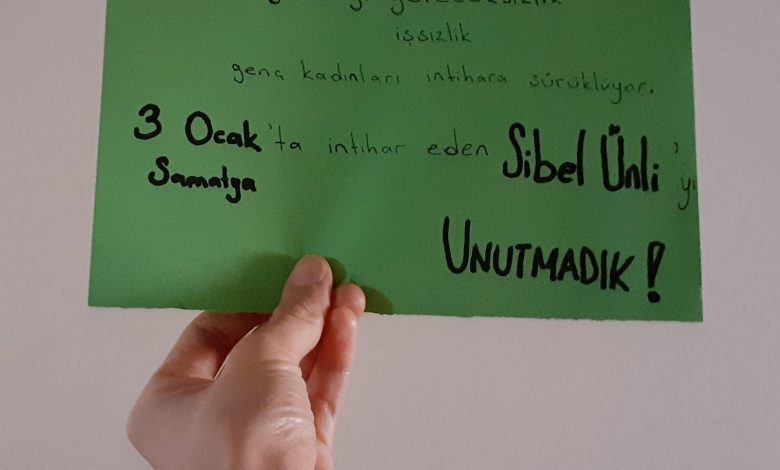 geleceksizlik
işsizlik
genç kadınları intihara sürüklüyor.
3 Ocak'ta intihar eden Sibel Ünli'yi
Samatya
UNUTMADIK!